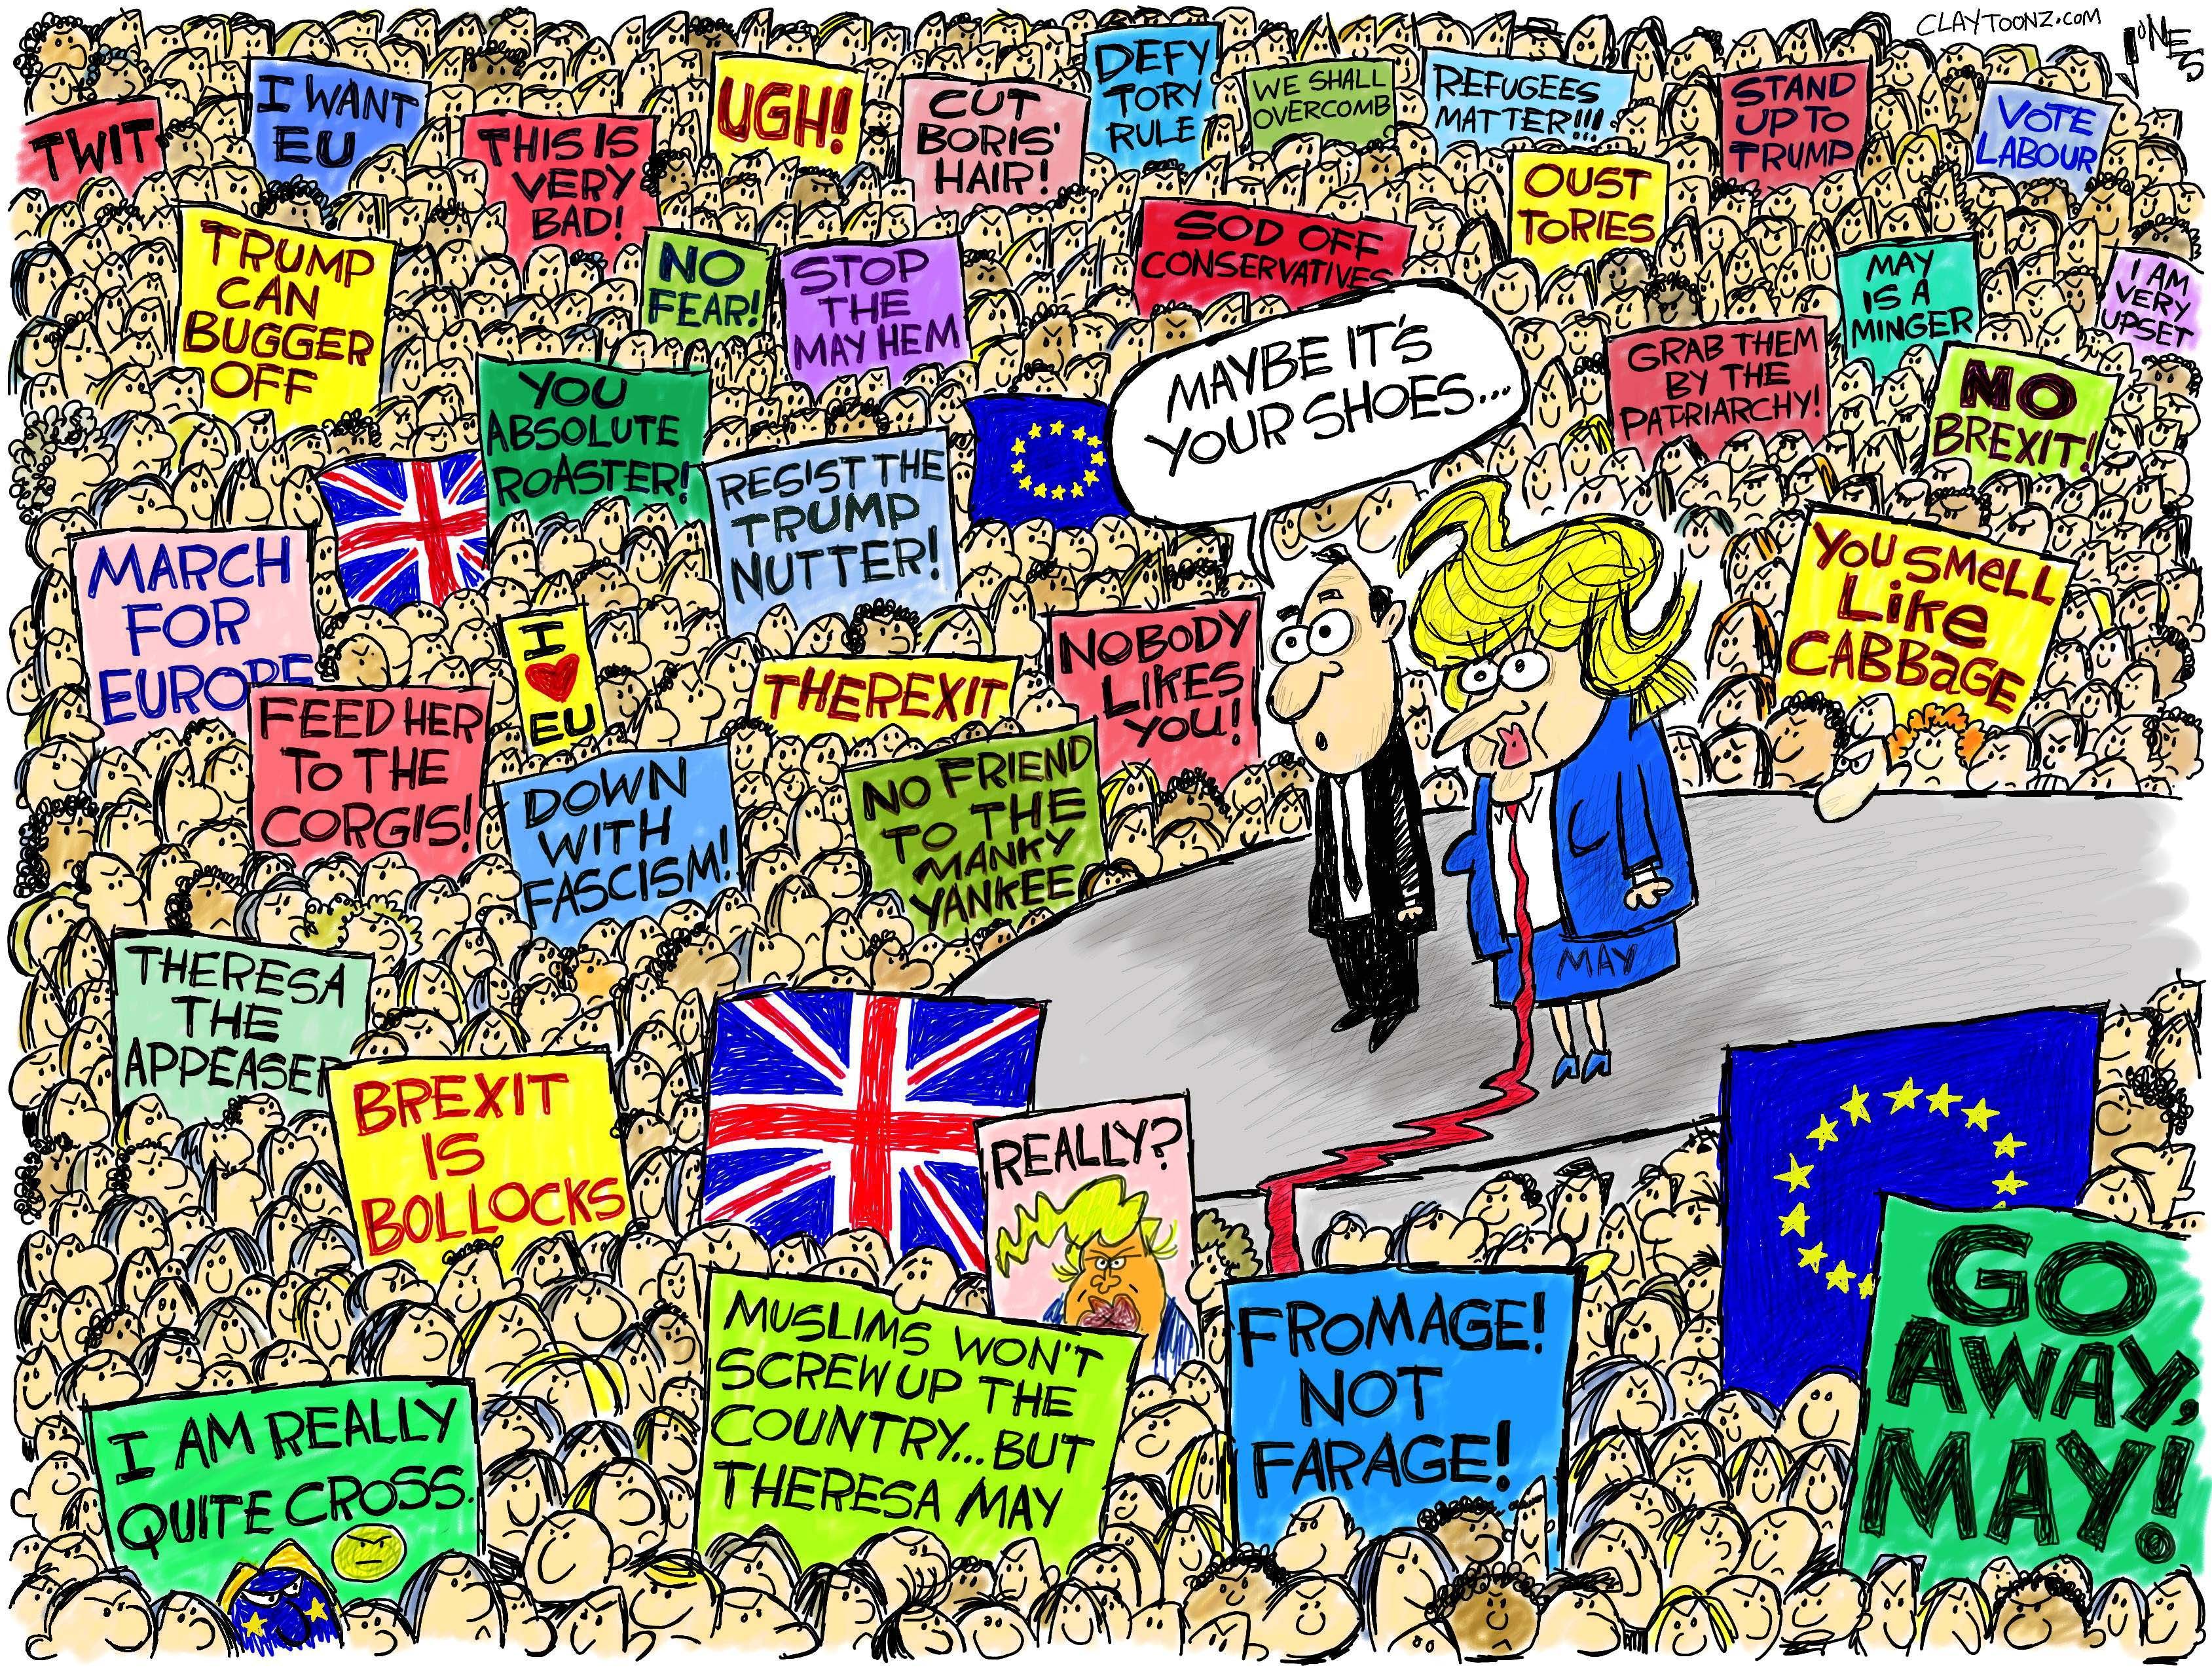 CLAYTOONZ.COM
JONES
TWIT
I WANT
EU
THIS IS
VERY
BAD!
UGH!
CUT
BORIS'
HAIR!
DEFY
TORY
RULE
WE SHALL
OVERCOMB
REFUGEES
MATTER!!!
STAND
UP TO
TRUMP
VOTE
LABOUR
TRUMP
CAN
BUGGER
OFF
NO
FEAR!
STOP
THE
MAYHEM
SOD OFF
CONSERVATIVES
OUST
TORIES
MAY
IS A
MINGER
I AM
VERY
UPSET
YOU
ABSOLUTE
ROASTER!
MAYBE IT'S
YOUR SHOES...
GRAB THEM
BY THE
PATRIARCHY!
NO
BREXIT!
RESIST THE
TRUMP
NUTTER!
MARCH
FOR
EUROPE
YOU SMELL
LIKE
CABBAGE
I
EU
THEREXIT
NOBODY
LIKES
YOU!
FEED HER
TO THE
CORGIS!
DOWN
WITH
FASCISM!
NO FRIEND
TO THE
MANKY
YANKEE
MAY
THERESA
THE
APPEASER
BREXIT
IS
BOLLOCKS
REALLY?
MUSLIMS WON'T
SCREW UP THE
COUNTRY...BUT
THERESA MAY
FROMAGE!
NOT
FARAGE!
GO
AWAY,
MAY!
I AM REALLY
QUITE CROSS.